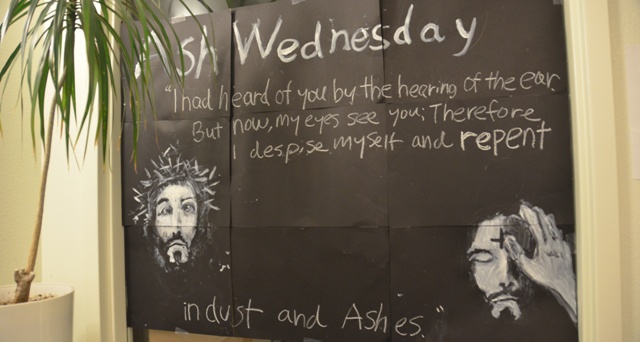 Ash Wednesday
"I had heard of you by the hearing of the ear.
But now, my eyes see you; Therefore,
I despise myself and repent
in dust and Ashes."